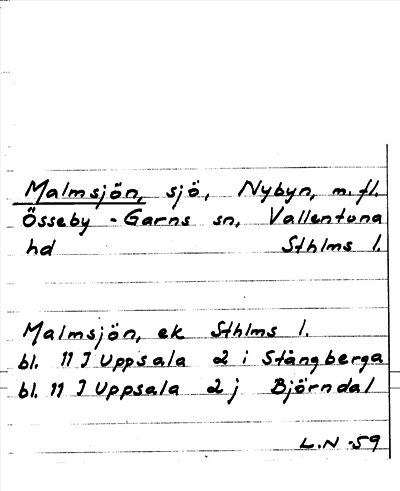 Malmsjön, sjö, Nybyn, m. fl.
Össeby - Garns sn, Vallentuna
hd Sthlms l.
Malmsjön, ek Sthlms l.
bl. 11 I Uppsala 2 i Stångberga
bl. 11 I Uppsala 2 j Björndal
L.N -59